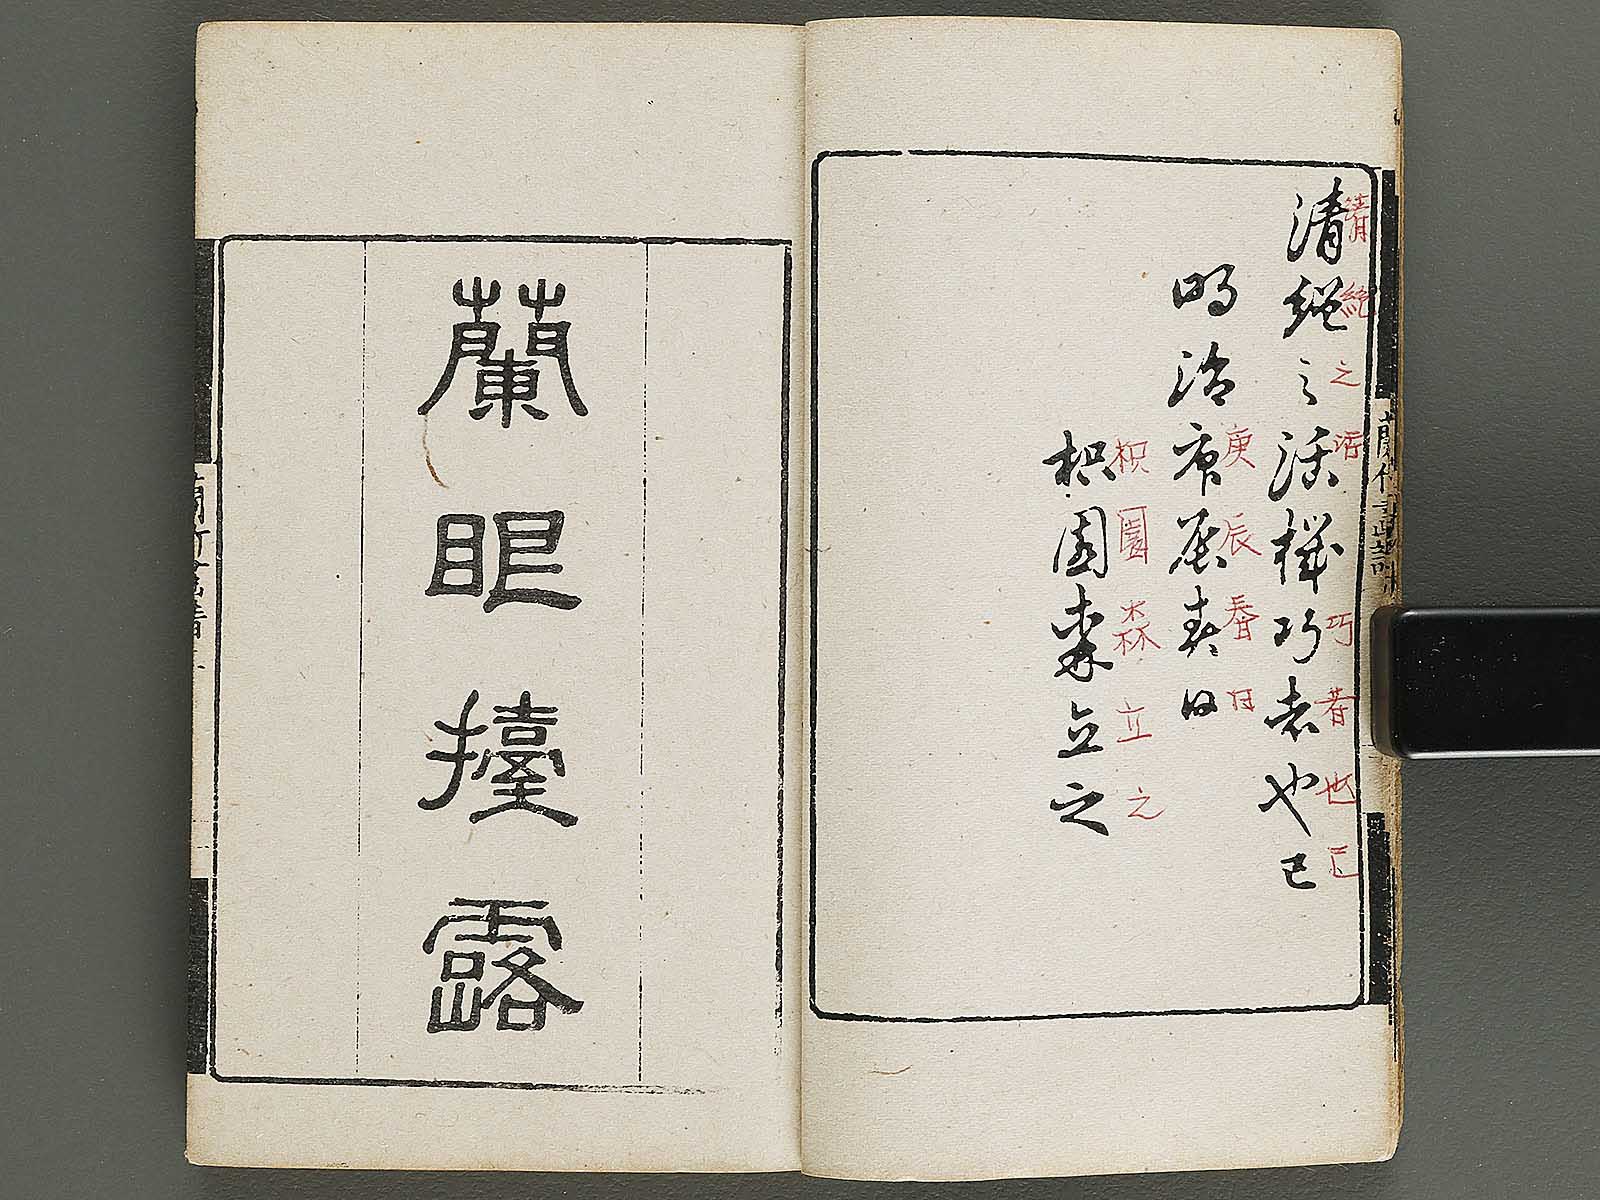 清絶之活機巧者也已
清絶之活巧者也已
明治庚辰春日
庚辰春日
枳園森立之
枳園森立之
蘭眼擡露